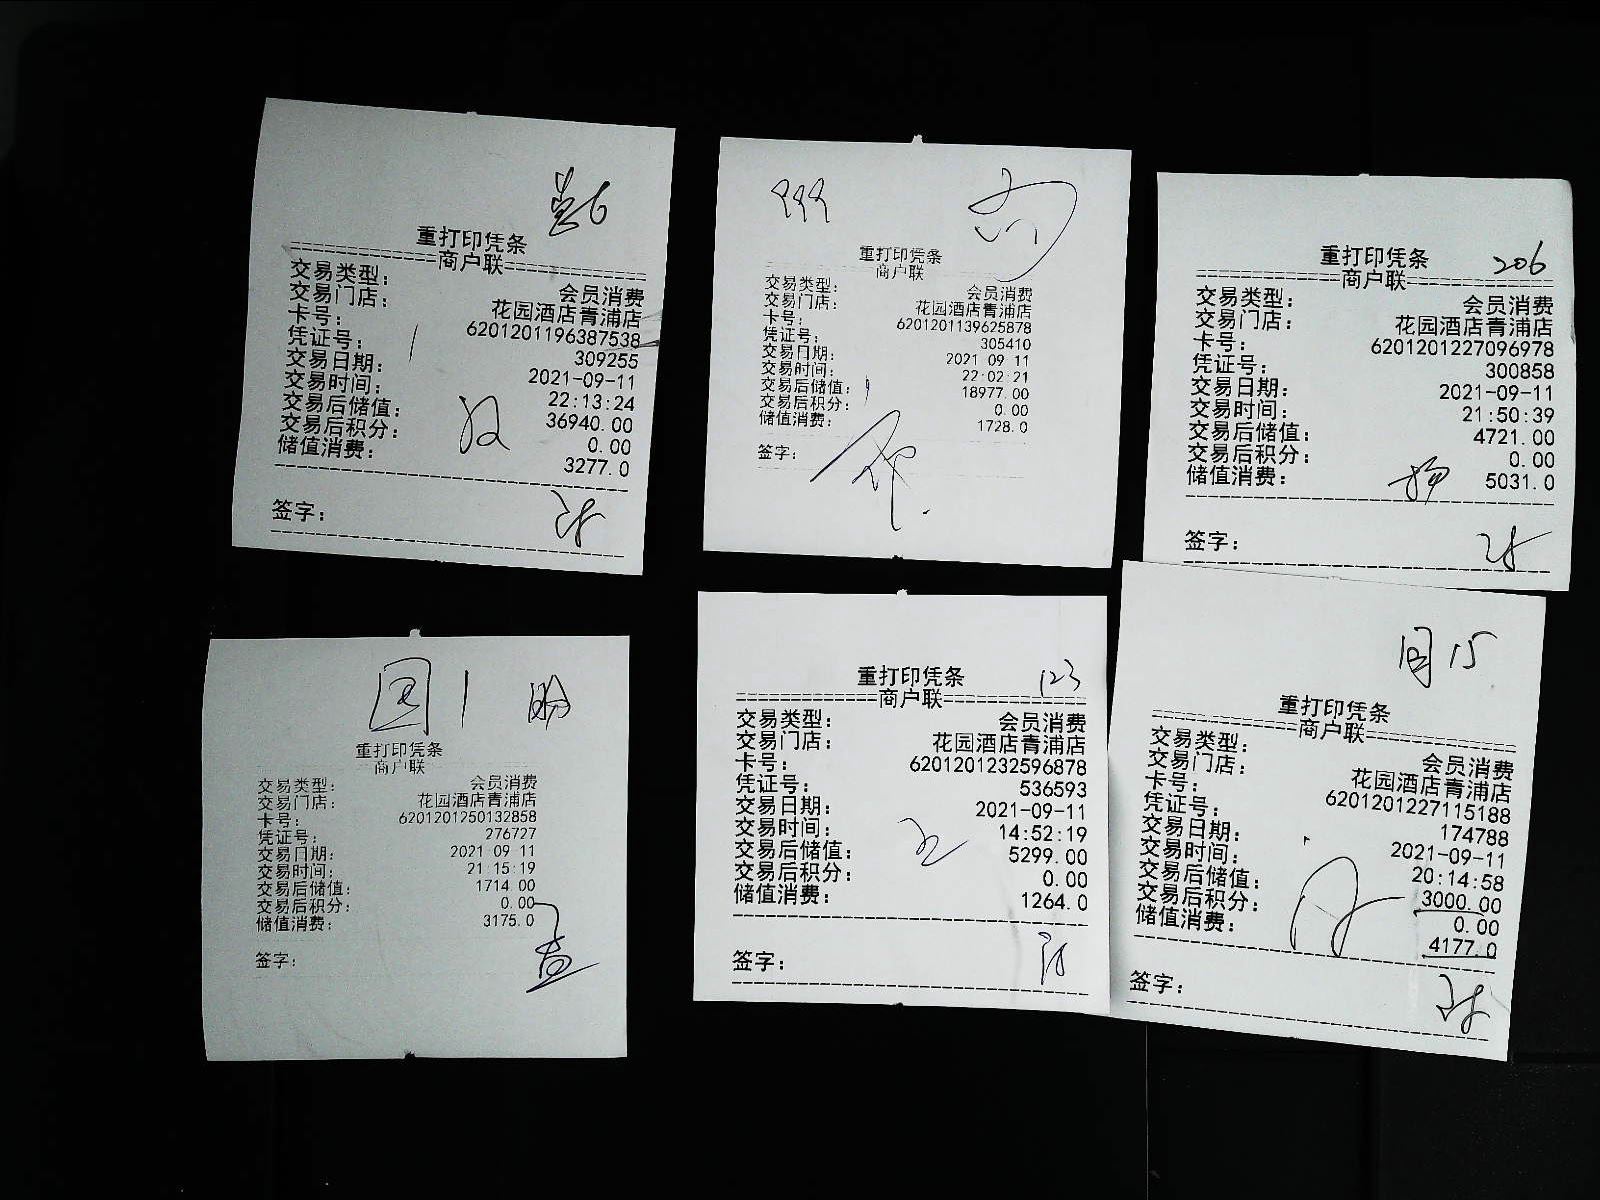 重打印凭条
==========商户联==========
交易类型: 会员消费
交易门店: 花园酒店青浦店
卡号: 6201201196387538
凭证号: 309255
交易日期: 2021-09-11
交易时间: 22:13:24
交易后储值: 36940.00
交易后积分: 0.00
储值消费: 3277.0
签字:
999
重打印凭条
商户联
交易类型: 会员消费
交易门店: 花园酒店青浦店
卡号: 6201201139625878
凭证号: 305410
交易日期: 2021 09 11
交易时间: 22:02:21
交易后储值: 18977.00
交易后积分: 0.00
储值消费: 1728.0
签字:
重打印凭条 206
==========商户联==========
交易类型: 会员消费
交易门店: 花园酒店青浦店
卡号: 6201201227096978
凭证号: 300858
交易日期: 2021-09-11
交易时间: 21:50:39
交易后储值: 4721.00
交易后积分: 0.00
储值消费: 5031.0
签字:
重打印凭条
商户联
交易类型: 会员消费
交易门店: 花园酒店青浦店
卡号: 6201201250132858
凭证号: 276727
交易日期: 2021 09 11
交易时间: 21:15:19
交易后储值: 1714.00
交易后积分: 0.00
储值消费: 3175.0
签字:
重打印凭条 123
==========商户联==========
交易类型: 会员消费
交易门店: 花园酒店青浦店
卡号: 6201201232596878
凭证号: 536593
交易日期: 2021-09-11
交易时间: 14:52:19
交易后储值: 5299.00
交易后积分: 0.00
储值消费: 1264.0
签字:
15
重打印凭条
==========商户联==========
交易类型: 会员消费
交易门店: 花园酒店青浦店
卡号: 6201201227115188
凭证号: 174788
交易日期: 2021-09-11
交易时间: 20:14:58
交易后储值: 3000.00
交易后积分: 0.00
储值消费: 4177.0
签字: